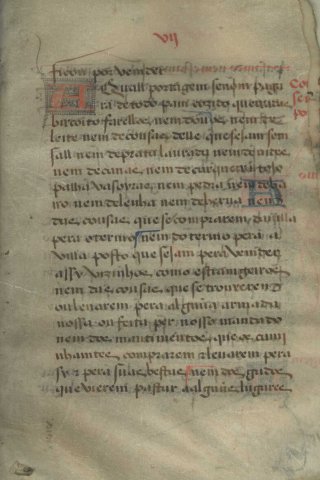 vij
ficou por vender
A Qual portagem se nom paga
ra de todo pam cozido queijadas
biscoito farellos nem douos nem de
leite nem de cousas delle que sejam sem
sall nem de prata laurada nem de vides
nem de canas nem de carqueja tojo
palha vasoyras nem pedra nem de ba
rro nem de lenha nem derua nem
das cousas que se comprarem da villa
pera o termo nem do termo pera a
villa posto que sejam pera vender
assy vizinhos como estrangeiros
nem das cousas que se trouxerem
ou leuarem pera algũa armada
nossa ou feita per nosso mandado
nem dos mantimentos que os cami
nhantes comprarem e leuarem pera
sy e pera suas bestas nem dos gados
que vierem pastar a alguũs lugares